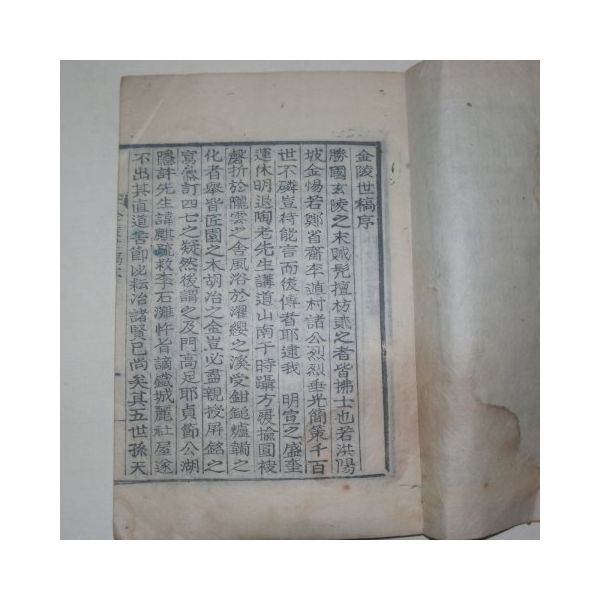 金陵世稿序
勝國玄陵之末戚髡擅枋貳之者皆拂士也若洪陽
坡金惕若鄭省齋李遁村諸公烈烈垂光簡策千百
世不磷豈待能言而後傳者耶逮我 明宣之盛奎
運休明退陶老先生講道山南于時躡方屨揄圓袂
磬折於隴雲之舍風浴於濯纓之溪受鉗鎚爐韝之
化者擧皆匠園之木胡冶之金豈必盡親授屏銘之
寫僉訂四七之疑然後謂之及門高足耶貞節公湖
隱許先生諱麒疏救李石灘忤旨謫鐵城麗社屋遂
不出其直道苦節比耘冶諸賢已尚矣其五世孫天